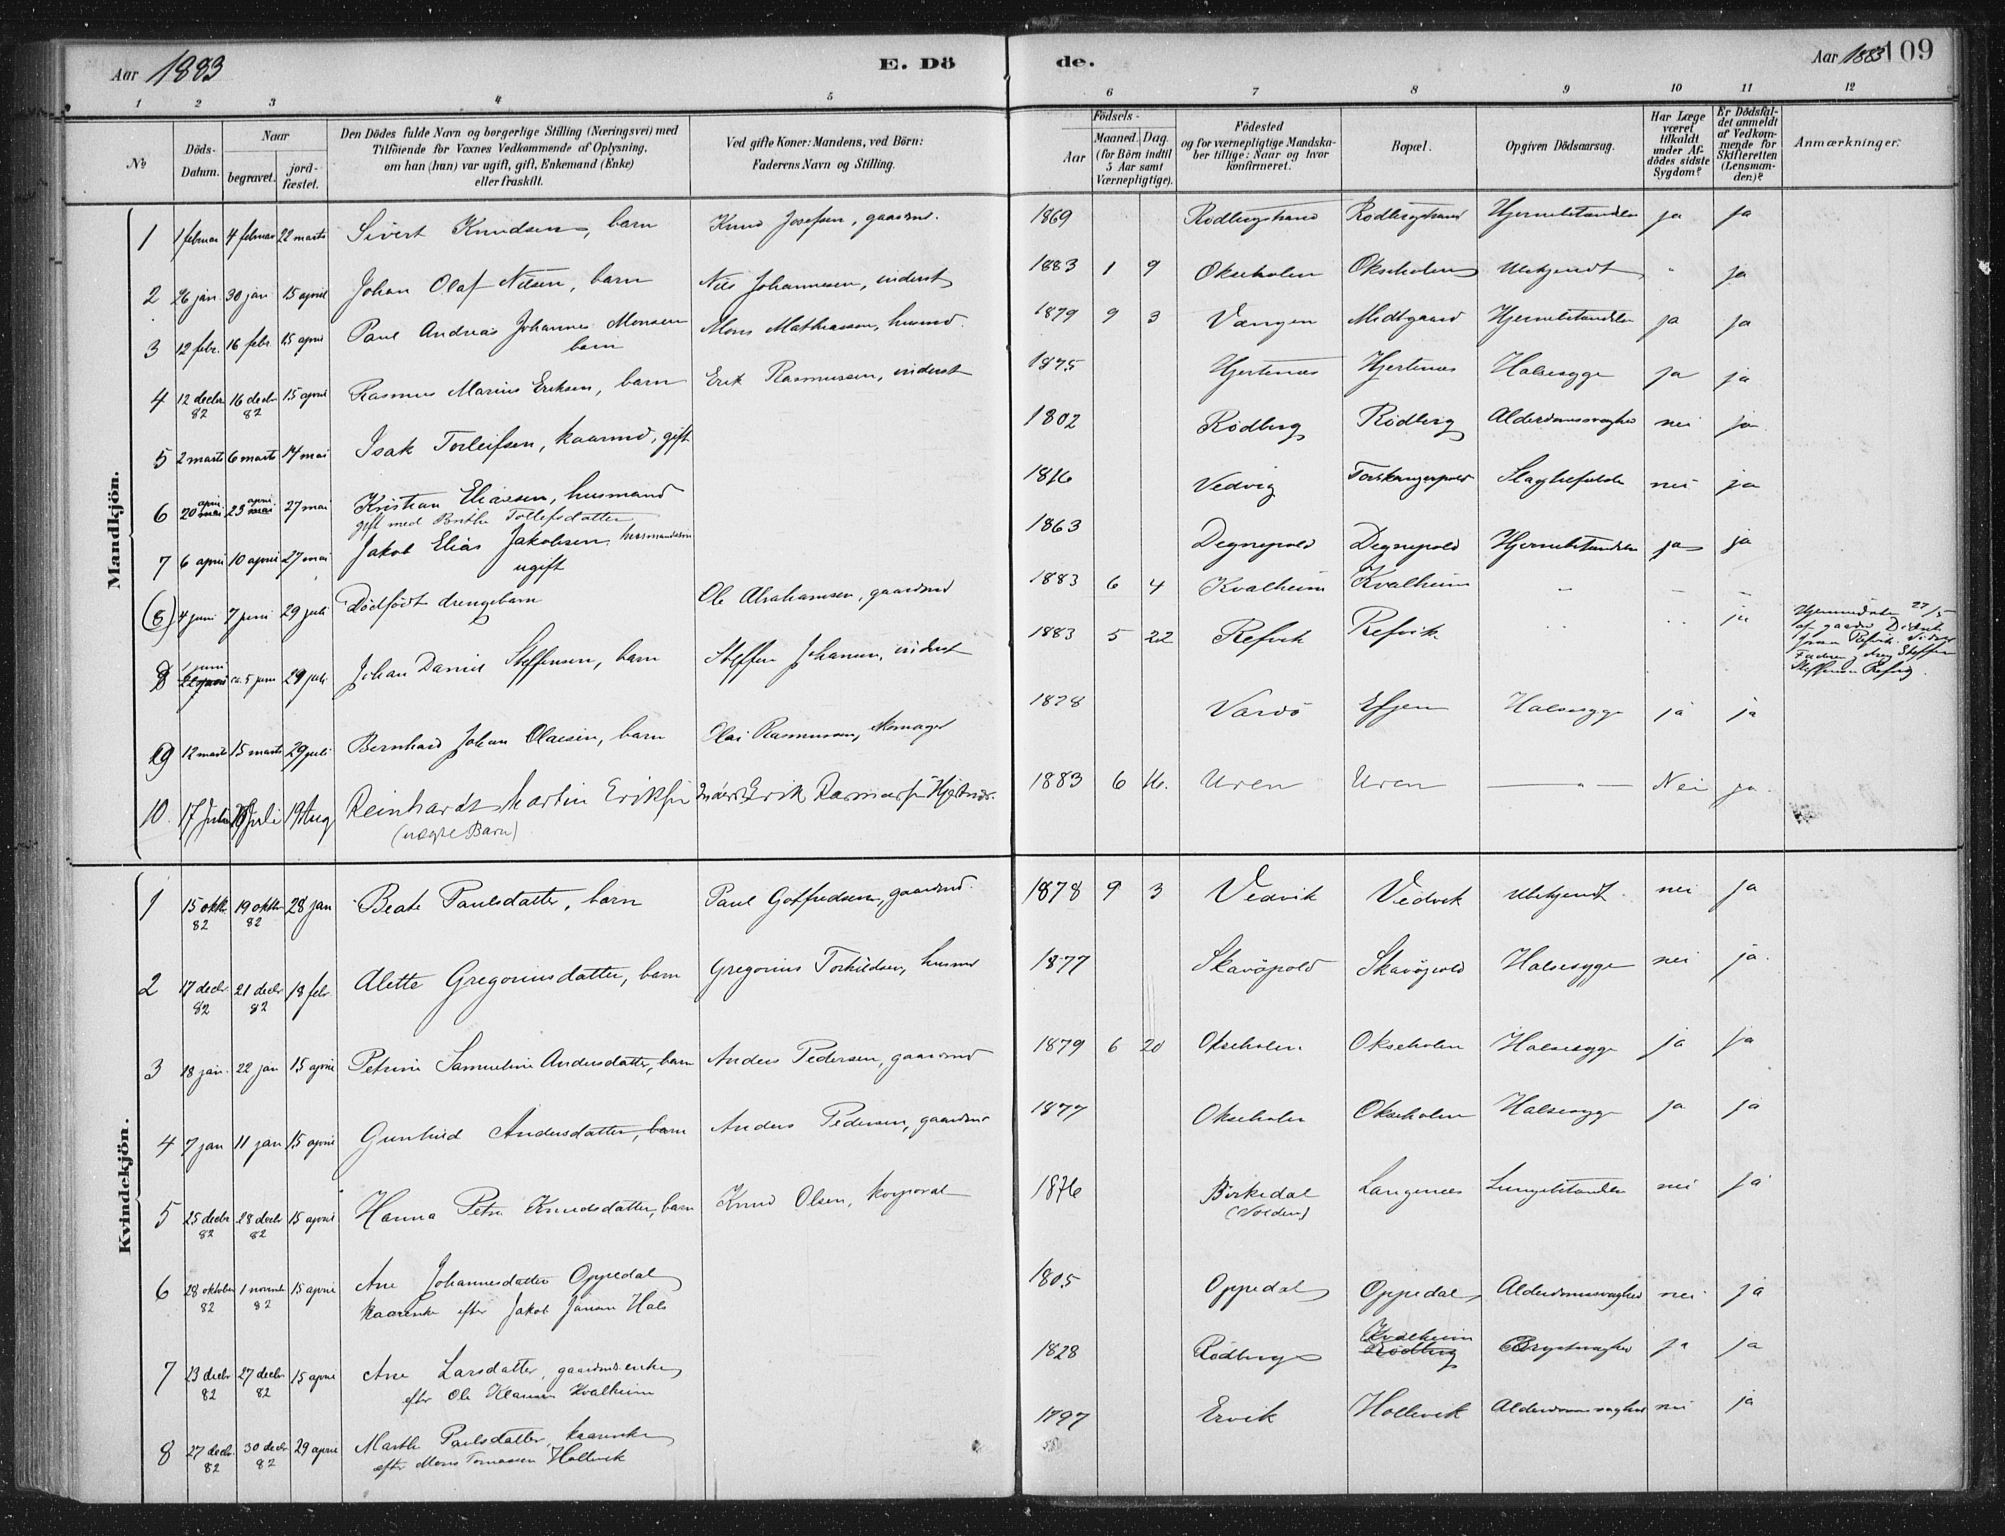 Aar 1883
E. Dö
de.
Aar 1883
109
1 2 3 4 5 6 7 8 9 10 11 12
№
Döds-
Datum.
Naar
begravet.
jord-
fæstet.
Den Dödes fulde Navn og borgerlige Stilling (Næringsvei) med
Tilföiende for Voxnes Vedkommende af Oplysning,
om han (hun) var ugift, gift, Enkemand (Enke)
eller fraskilt.
Ved gifte Koner: Mandens, ved Börn:
Faderens Navn og Stilling.
Födsels-
Aar
Maaned. Dag.
(for Börn indtil
5 Aar samt
Værnepligtige).
Födested
og for værnepligtige Mandska-
ber tillige: Naar og hvor
konfirmeret.
Bopæl.
Opgiven Dödsaarsag.
Har Læge
været
tilkaldt
under Af-
dödes sidste
Sygdom?
Er Dödsfal-
det anmeldt
af Vedkom-
mende for
Skifteretten
(Lensman-
den)?
Anmærkninger.
Mandkjön.
1 1 februar 4 februar 22 marts Sivert Knudsen, barn Knud Josefsen, gaardmd. 1869 Rödbergstrand Rödbergstrand Hjernebetændelse ja ja
2 26 jan. 30 jan 15 april Johan Olaf Nilsen, barn Nils Johannesen, inderst 1883 1 9 Okseholen Okseholen Ubekjendt - ja
3 12 febr. 16 febr. 15 april Paul Andreas Johannes Monsen Mons Mathiassen, husmd. 1879 9 3 Vangen Midtgaard Hjernebetændelse ja ja
barn
4 12 decbr 16 decbr 15 april Rasmus Marius Eriksen, barn Erik Rasmussen, inderst 1875 Hjertenæs Hjertenæs Halsesyge ja ja
82 82
5 2 marts 6 marts 14 mai Isak Torleifsen, kaarmd, gift 1802 Rödberg Rödberg Alderdomssvaghed nei ja.
6 20 april mai 23 april mai 27 mai Kristian Eliassen, husmand 1816 Vedvig Slagtilfælde nei ja
gift med Berthe Tollefsdatter
7 6 april 10 april 27 mai Jakob Elias Jakobsen husmandssön 1863 Degnepold Degnepold Hjernebetændelse ja ja
ugift
(8) 4 juni 7 juni 29 juli Dödfödt drengebarn Ole Abrahamsen, gaardmd 1883 6 4 Kvalheim Kvalheim - - -
8 1 juni 5 juni 29 juli Johan Daniel Steffensen, barn Steffen Johansen, inderst 1883 5 22 Refvik Refvik ja
Hjemmedöbt 27/5
af gaardm
Refvik.
Steffen
Steffensen Refvig.
9 12 marts 15 marts 29 juli Bernhard Johan Olaisen, barn Olai Rasmussen, skomager 1828 Vardö Halsesyge ja ja
10. 17 Juli Juli 19 Aug Reinhardt Martin Eriksen Inderst Erik Rasmussen Hjertenæs. 1883 6 16. Uren Uren - " - Nei ja.
(uægte Barn)
Kvindekjön.
1 15 oktbr 19 oktbr 28 jan Beate Paulsdatter, barn Paul Gotfredsen, gaardmd. 1878 9 3 Vedvik Vedvik Ubekjendt. nei ja
82 82
2 17 decbr 21 decbr 18 febr Alette Gregoriusdatter, barn Gregorius Torkildsen, husmd 1877 Skavöpold Skavöpold Halsesyge nei ja.
82 82
3 18 jan. 22 jan 15 april Petrine Samueline Andersdatter, barn Anders Pedersen, gaardmd 1879 6 20 Okseholen Okseholen Halsesyge ja ja
4 7 jan 11 jan 15 april Gunhild Andersdatter, barn Anders Pedersen, gaardmd 1877 Okseholen Okseholen Halsesyge ja ja
5 25 decbr 28 decbr 15 april Hanna Petra Knudsdatter, barn Knud Olsen, korporal 1876 Birkedal Langenæs Lungebetændelse nei ja
82 82 (Volden)
6 28 oktober 1 novmbr 15 april Ane Johannesdatter Oppedal 1805 Oppedal Oppedal Alderdomssvaghed nei ja
82 82 kaarenke efter Jakob Jansen Hals
7 23 decbr 27 decbr 15 april Ane Larsdatter, gaardmdsenke 1828 Rödberg Kvalheim Rödberg Brystsvaghed ja ja
82 82 efter Ole Klausen Kvalheim
8 27 decbr. 30 decbr 29 april Marthe Paulsdatter, kaarenke 1797 Ervik Hollevik Alderdomssvaghed nei ja
82 82 efter Mons Tomassen Hollevik